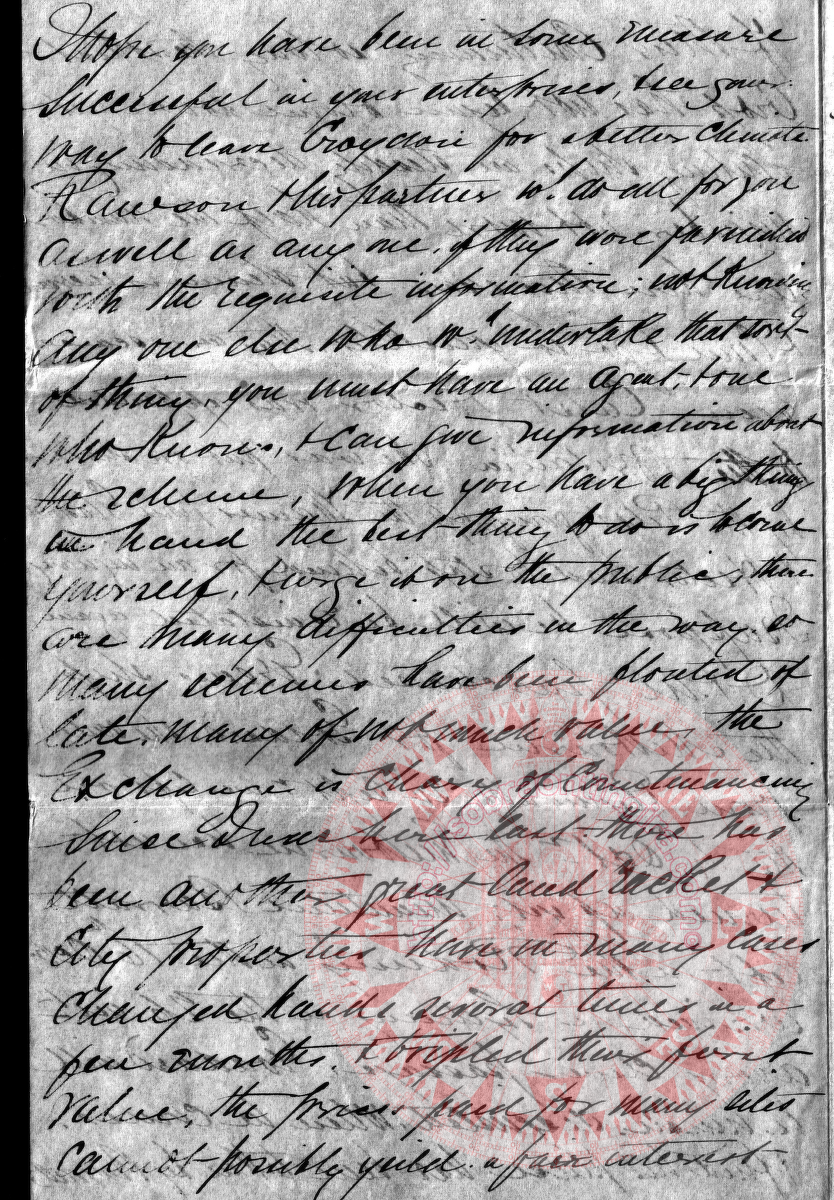 I hope you have been in some measure
successful in your enterprises, & see your
way to leave Croydon for a better climate.
Rawson & his partner wd. do all for you
as well as any one, if they were furnished
with the requisite information; not knowing
any one else who wd. undertake that sort
of thing, you must have an agent, & one
who knows, & can give information about
the scheme, when you have a big thing
in hand the best thing to do is to come
yourself, & urge it on the public, there
are many difficulties in the way. so
many schemes have been floated of
late, many of not much value, the
Exchange is chary of countenancing
Since I was here last there has
been another great land racket &
City properties have in many cases
changed hands several times in a
few months, & tripled their first
value, the prices paid for many sites
cannot possibly yield a fair interest.